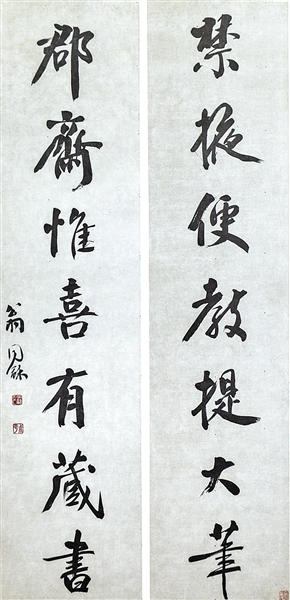 禁掖便教提大筆
郡齋惟喜有藏書
翁同龢